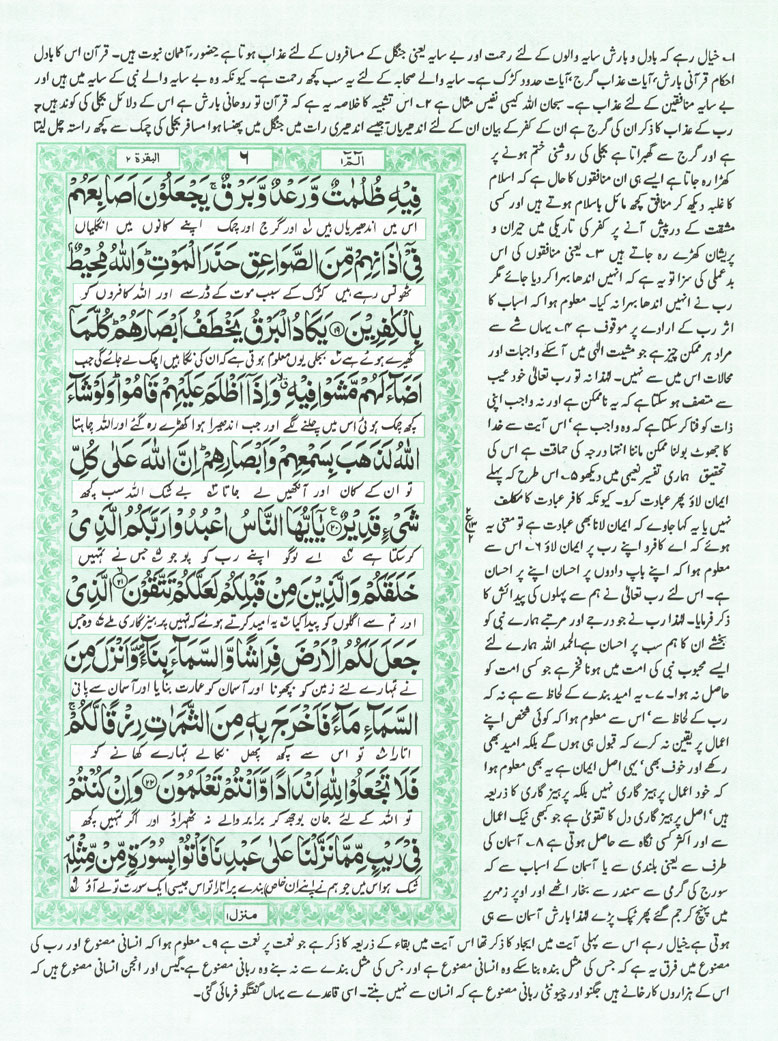 ۱۔ خیال رہے کہ بادل و بارش سایہ والوں کے لئے رحمت اور بے سایہ یعنی جنگل کے مسافروں کے لئے عذاب ہوتا ہے حضور، آسمان نبوت ہیں۔ قرآن اس کا بادل
احکام قرآنی بارش، آیات عذاب گرج، آیات حدود کڑک ہے۔ سایہ والے صحابہ کے لئے یہ سب کچھ رحمت ہے۔ کیونکہ وہ بے سایہ والے نبی کے سایہ میں ہیں اور
بے سایہ منافقین کے لئے عذاب ہے۔ سبحان اللہ کیسی نفیس مثال ہے ۲۔ اس تشبیہ کا خلاصہ یہ ہے کہ قرآن تو روحانی بارش ہے اس کے دلائل بجلی کی کوند ہیں
رب کے عذاب کا ذکر ان کی گرج ہے ان کے کفر کے بیان ان کے لئے اندھیریاں جیسے اندھیری رات میں جنگل میں پھنسا ہوا مسافر بجلی کی چمک سے کچھ راستہ چل لیتا
ہے اور گرج سے گھبراتا ہے بجلی کی روشنی ختم ہونے پر
کھڑا رہ جاتا ہے ایسے ہی ان منافقوں کا حال ہے کہ اسلام
کا غلبہ دیکھ کر منافق کچھ مائل باسلام ہوتے ہیں اور کسی
مشقت کے درپیش آنے پر کفر کی تاریکی میں حیران و
پریشان کھڑے رہ جاتے ہیں ۳۔ یعنی منافقوں کی اس
بدعملی کی سزا تو یہ ہے کہ انہیں اندھا بہرا کر دیا جائے مگر
رب نے انہیں اندھا بہرا نہ کیا۔ معلوم ہوا کہ اسباب کا
اثر رب کے ارادے پر موقوف ہے ۴۔ یہاں شے سے
مراد ہر ممکن چیز ہے جو مشیت الٰہی میں آسکے واجبات اور
محالات اس میں سے نہیں۔ لہٰذا نہ تو رب تعالیٰ خود عیب
سے متصف ہو سکتا ہے کہ یہ ناممکن ہے اور نہ واجب اپنی
ذات کو فنا کر سکتا ہے کہ وہ واجب ہے، اس آیت سے خدا
کا جھوٹ بولنا ممکن ماننا انتہا درجہ کی حماقت ہے اس کی
تحقیق ہماری تفسیر نعیمی میں دیکھو ۵۔ اس طرح کہ پہلے
ایمان لاؤ پھر عبادت کرو۔ کیونکہ کافر عبادت کا مکلف
نہیں یا یہ کہا جاوے کہ ایمان لانا بھی عبادت ہے تو معنی یہ
ہوئے کہ اے کافرو اپنے رب پر ایمان لاؤ ۶۔ اس سے
معلوم ہوا کہ اپنے باپ دادوں پر احسان اپنے پر احسان
ہے۔ اس لئے رب تعالیٰ نے ہم سے پہلوں کی پیدائش کا
ذکر فرمایا۔ لہٰذا رب نے جو درجے اور مرتبے ہمارے نبی کو
بخشے ان کا ہم سب پر احسان ہے۔ الحمد للہ ہمارے لئے
ایسے محبوب نبی کی امت میں ہونا فخر ہے جو کسی امت کو
حاصل نہ ہوا۔ ۷۔ یہ امید بندے کے لحاظ سے ہے نہ کہ
رب کے لحاظ سے، اس سے معلوم ہوا کہ کوئی شخص اپنے
اعمال پر یقین نہ کرے کہ قبول ہی ہوں گے بلکہ امید بھی
رکھے اور خوف بھی، یہی اصل ایمان ہے یہ بھی معلوم ہوا
کہ خود اعمال پرہیز گاری نہیں بلکہ پرہیز گاری کا ذریعہ
ہیں، اصل پرہیز گاری دل کا تقویٰ ہے جو کبھی نیک اعمال
سے اور اکثر کسی نگاہ سے حاصل ہوتی ہے ۸۔ آسمان کی
طرف سے یعنی بلندی سے یا آسمان کے اسباب سے کہ
سورج کی گرمی سے سمندر سے بخار اٹھے اور اوپر زمہریر
میں پہنچ کر جم گئے پھر ٹپک پڑے لہٰذا بارش آسمان سے ہی
البقرة ۲
۶
الٓمّٓ ۱
فِیْهِ ظُلُمٰتٌ وَّرَعْدٌ وَّبَرْقٌ ۚ یَجْعَلُوْنَ اَصَابِعَهُمْ
اس میں اندھیریاں ہیں اور گرج اور چمک اپنے کانوں میں انگلیاں
فِیْۤ اٰذَانِهِمْ مِّنَ الصَّوَاعِقِ حَذَرَ الْمَوْتِ ؕ وَاللّٰهُ مُحِیْطٌۢ
ٹھونس رہے ہیں کڑک کے سبب موت کے ڈر سے اور اللہ کافروں کو
بِالْكٰفِرِیْنَ ﴿۱۹﴾ یَكَادُ الْبَرْقُ یَخْطَفُ اَبْصَارَهُمْ ؕ كُلَّمَاۤ
گھیرے ہوئے ہے بجلی یوں معلوم ہوتی ہے کہ ان کی نگاہیں اچک لے جائے گی جب
اَضَآءَ لَهُمْ مَّشَوْا فِیْهِ ۙ وَاِذَاۤ اَظْلَمَ عَلَیْهِمْ قَامُوْا ؕ وَلَوْ شَآءَ
کچھ چمک ہوئی اس میں چلنے لگے اور جب اندھیرا ہوا کھڑے رہ گئے اور اللہ چاہتا
اللّٰهُ لَذَهَبَ بِسَمْعِهِمْ وَاَبْصَارِهِمْ ؕ اِنَّ اللّٰهَ عَلٰی كُلِّ
تو ان کے کان اور آنکھیں لے جاتا بے شک اللہ سب کچھ
شَیْءٍ قَدِیْرٌ ﴿۲۰﴾ یٰۤاَیُّهَا النَّاسُ اعْبُدُوْا رَبَّكُمُ الَّذِیْ
کر سکتا ہے اے لوگو اپنے رب کو پوجو جس نے تمہیں
خَلَقَكُمْ وَالَّذِیْنَ مِنْ قَبْلِكُمْ لَعَلَّكُمْ تَتَّقُوْنَ ﴿۲۱﴾ الَّذِیْ
اور تم سے اگلوں کو پیدا کیا یہ امید کرتے ہوئے کہ تمہیں پرہیز گاری ملے وہ جس
جَعَلَ لَكُمُ الْاَرْضَ فِرَاشًا وَّالسَّمَآءَ بِنَآءً ۪ وَّاَنْزَلَ مِنَ
نے تمہارے لئے زمین کو بچھونا اور آسمان کو عمارت بنایا اور آسمان سے پانی
السَّمَآءِ مَآءً فَاَخْرَجَ بِهٖ مِنَ الثَّمَرٰتِ رِزْقًا لَّكُمْ ۚ
اتارا تو اس سے کچھ پھل نکالے تمہارے کھانے کو
فَلَا تَجْعَلُوْا لِلّٰهِ اَنْدَادًا وَّاَنْتُمْ تَعْلَمُوْنَ ﴿۲۲﴾ وَاِنْ كُنْتُمْ
تو اللہ کے لئے جان بوجھ کر برابر والے نہ ٹھہراؤ اور اگر تمہیں کچھ
فِیْ رَیْبٍ مِّمَّا نَزَّلْنَا عَلٰی عَبْدِنَا فَاْتُوْا بِسُوْرَةٍ مِّنْ مِّثْلِهٖ
شک ہو اس میں جو ہم نے اپنے ان خاص بندے پر اتارا تو اس جیسی ایک سورت تو لے آؤ
منزل ۱
ہوتی ہے خیال رہے اس سے پہلی آیت میں ایجاد کا ذکر تھا اس آیت میں بقاء کے ذریعہ کا ذکر ہے جو نعمت پر نعمت ہے ۹۔ معلوم ہوا کہ انسانی مصنوع اور رب کی
مصنوع میں فرق یہ ہے کہ جس کی مثل بندہ بنا سکے وہ انسانی مصنوع ہے اور جس کی مثل بندے سے نہ بنے وہ ربانی مصنوع ہے گیس اور انجن انسانی مصنوع ہیں کہ
اس کے ہزاروں کارخانے ہیں جگنو اور چیونٹی ربانی مصنوع ہے کہ انسان سے نہیں بنتے۔ اسی قاعدے سے یہاں گفتگو فرمائی گئی۔